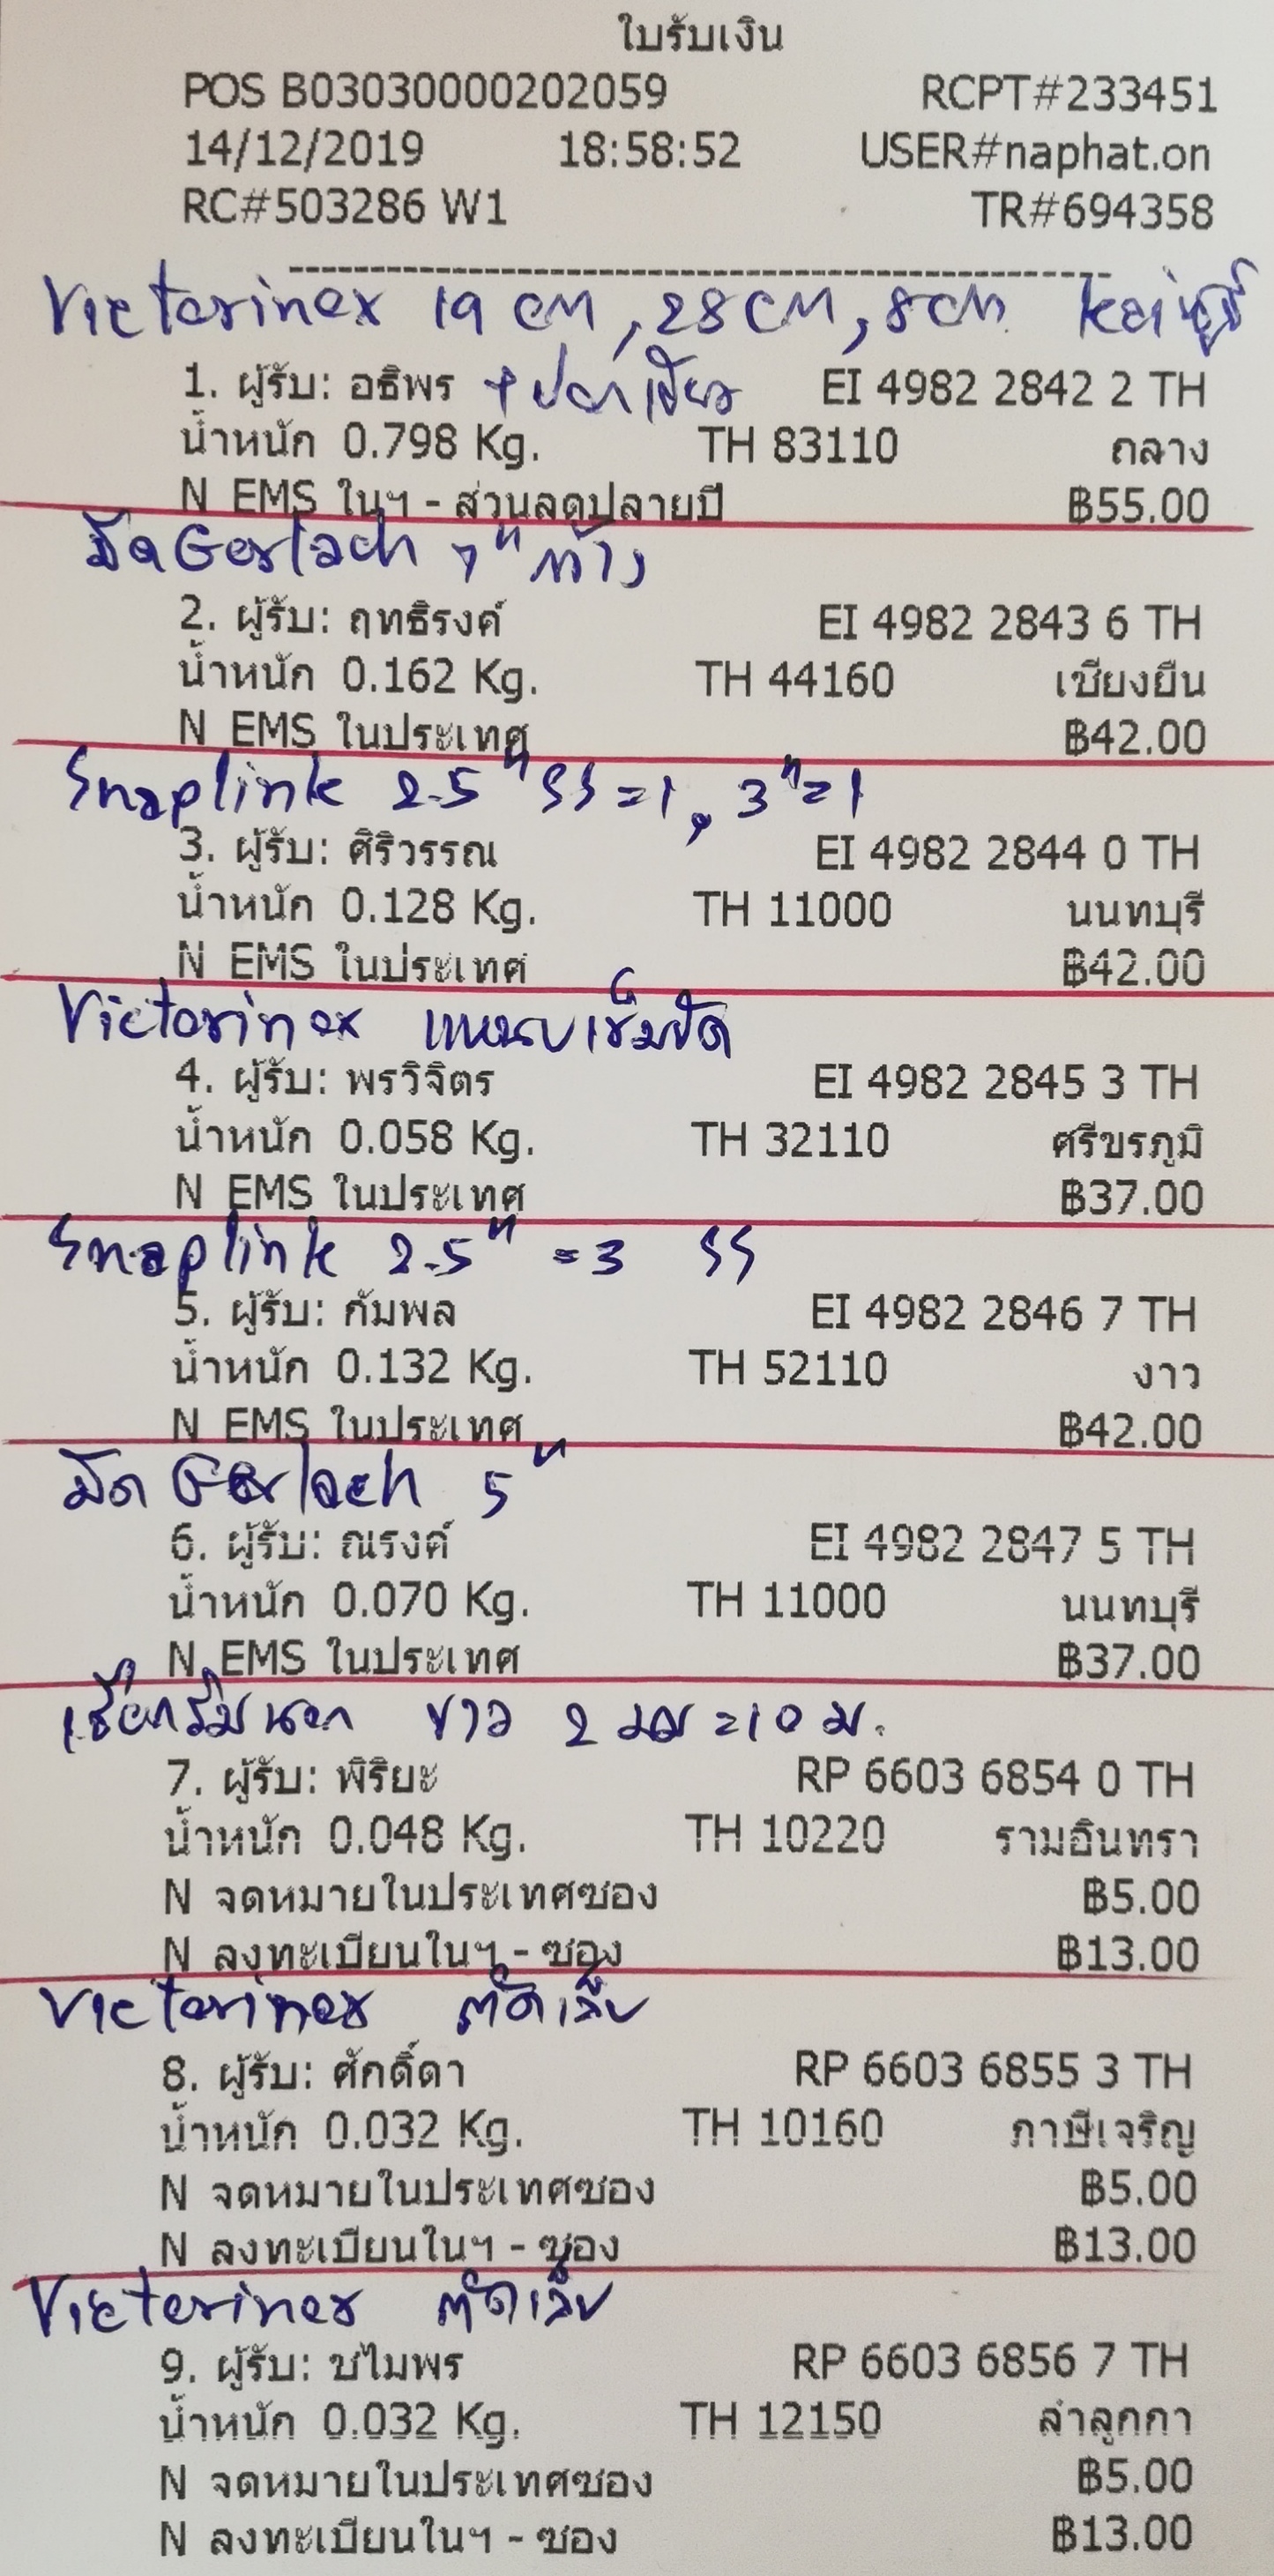 ใบรับเงิน
POS B03030000202059 RCPT#233451
14/12/2019 18:58:52 USER#naphat.on
RC#503286 W1 TR#694358
Victorinox 19 cm, 28 cm, 8 cm
1. ผู้รับ: อธิพร + ปอกเขียว EI 4982 2842 2 TH
น้ำหนัก 0.798 Kg. TH 83110 ถลาง
N EMS ในฯ - ส่วนลดปลายปี ฿55.00
มีด Gerlach 7" กว้าง
2. ผู้รับ: ฤทธิรงค์ EI 4982 2843 6 TH
น้ำหนัก 0.162 Kg. TH 44160 เชียงยืน
N EMS ในประเทศ ฿42.00
Snaplink 2.5" SS =1, 3"=1
3. ผู้รับ: ศิริวรรณ EI 4982 2844 0 TH
น้ำหนัก 0.128 Kg. TH 11000 นนทบุรี
N EMS ในประเทศ ฿42.00
Victorinox แหนบเข็มขัด
4. ผู้รับ: พรวิจิตร EI 4982 2845 3 TH
น้ำหนัก 0.058 Kg. TH 32110 ศรีขรภูมิ
N EMS ในประเทศ ฿37.00
Snaplink 2.5" =3 SS
5. ผู้รับ: กัมพล EI 4982 2846 7 TH
น้ำหนัก 0.132 Kg. TH 52110 งาว
N EMS ในประเทศ ฿42.00
มีด Gerlach 5"
6. ผู้รับ: ณรงค์ EI 4982 2847 5 TH
น้ำหนัก 0.070 Kg. TH 11000 นนทบุรี
N EMS ในประเทศ ฿37.00
เชือกร่มนอก ขาว 2 มม =10 ม.
7. ผู้รับ: พิริยะ RP 6603 6854 0 TH
น้ำหนัก 0.048 Kg. TH 10220 รามอินทรา
N จดหมายในประเทศซอง ฿5.00
N ลงทะเบียนในฯ - ซอง ฿13.00
Victorinox ตัดเล็บ
8. ผู้รับ: ศักดิ์ดา RP 6603 6855 3 TH
น้ำหนัก 0.032 Kg. TH 10160 ภาษีเจริญ
N จดหมายในประเทศซอง ฿5.00
N ลงทะเบียนในฯ - ซอง ฿13.00
Victorinox ตัดเล็บ
9. ผู้รับ: ชไมพร RP 6603 6856 7 TH
น้ำหนัก 0.032 Kg. TH 12150 ลำลูกกา
N จดหมายในประเทศซอง ฿5.00
N ลงทะเบียนในฯ - ซอง ฿13.00